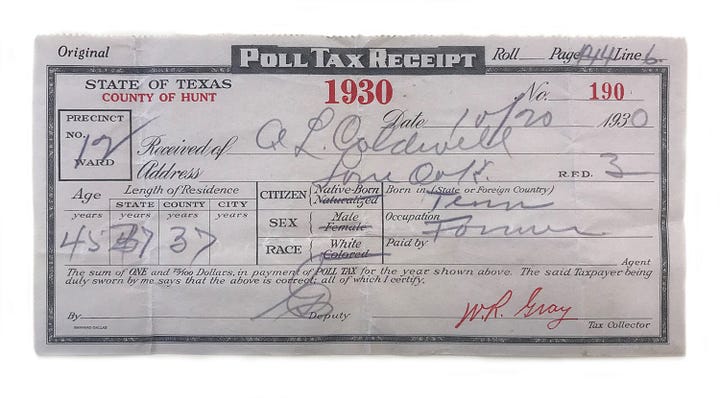 Original POLL TAX RECEIPT Roll Page 144 Line 6
STATE OF TEXAS 1930 No. 190
COUNTY OF HUNT
Date 10/20 1930
PRECINCT NO. 12 WARD
Received of A L. Caldwell
Address Lone Oak. R.F.D. 3
Age years 45
Length of Residence
STATE years 37 COUNTY years 37 CITY years
CITIZEN Native-Born Naturalized Born in (State or Foreign Country) Tenn
SEX Male Female Occupation Farmer
RACE White Colored Paid by
Agent
The sum of ONE and 75/100 Dollars, in payment of POLL TAX for the year shown above. The said Taxpayer being
duly sworn by me says that the above is correct; all of which I certify.
By Deputy W.R. Gray Tax Collector